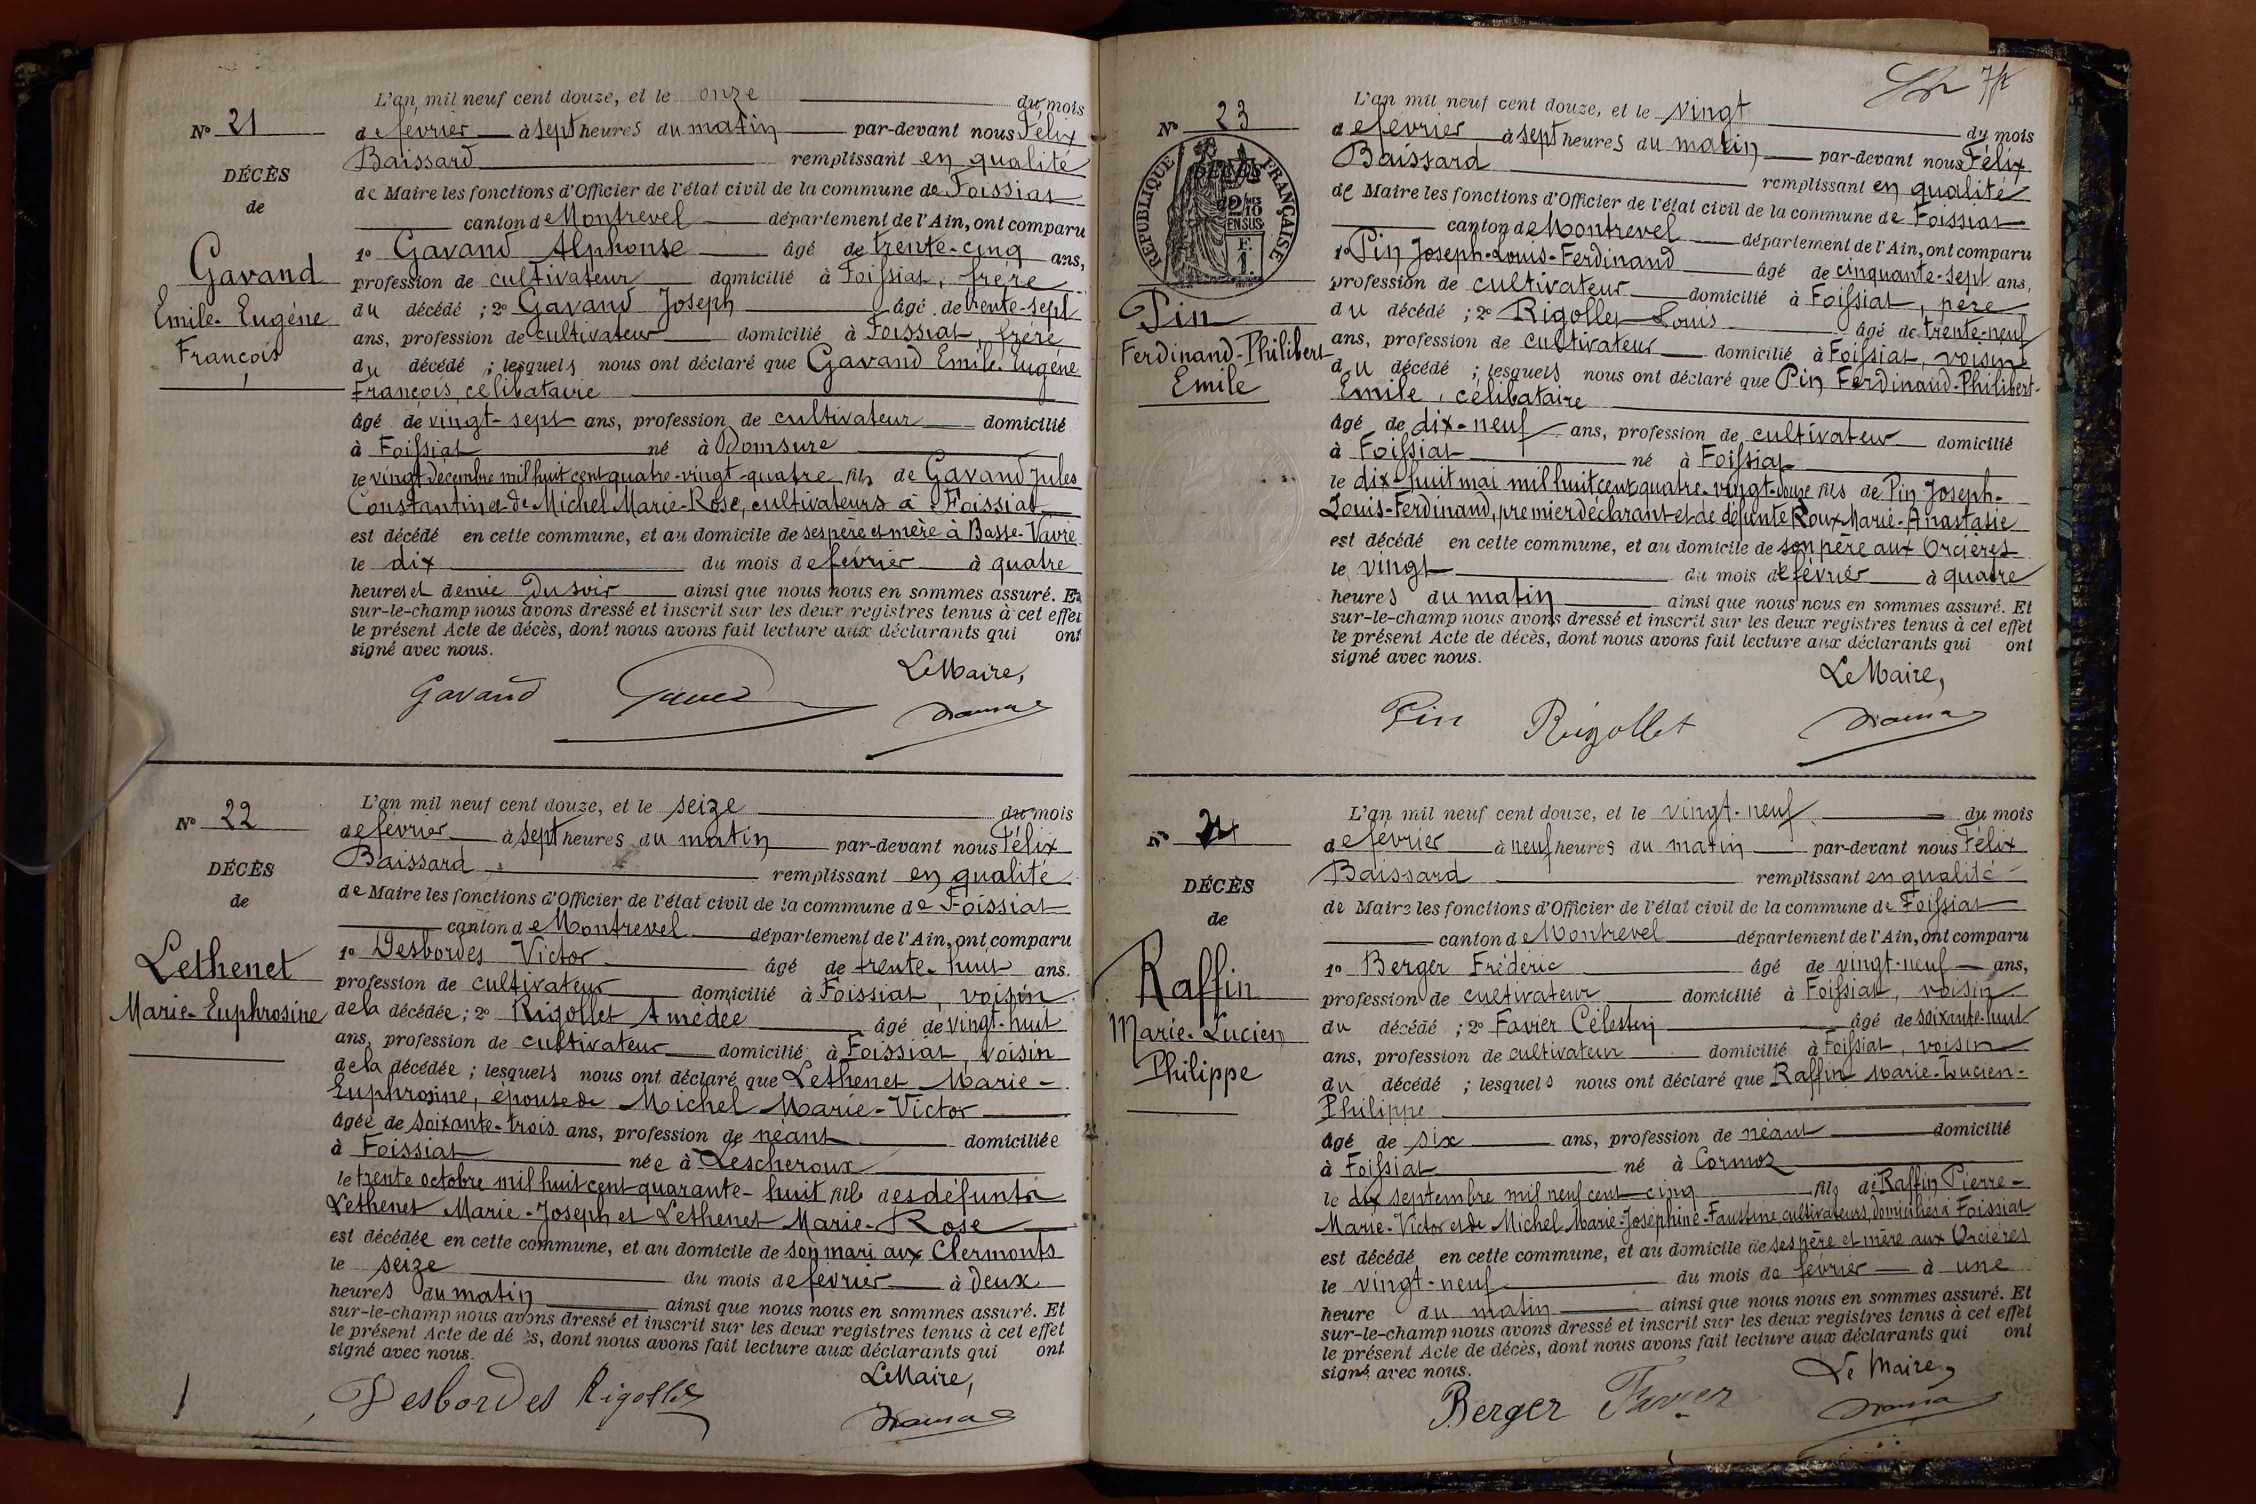 L'an mil neuf cent douze, et le onze du mois
N° 21
de février à sept heures du matin par-devant nous Félix
Baissard remplissant en qualité
DÉCÈS
de
de Maire les fonctions d'Officier de l'état civil de la commune de Foissiat
canton de Montrevel département de l'Ain, ont comparu
1° Gavand Alphonse âgé de trente-cinq ans,
Gavand
Emile-Eugène
François
profession de cultivateur domicilié à Foissiat, frère
du décédé ; 2° Gavand Joseph âgé de trente-sept
ans, profession de cultivateur domicilié à Foissiat, frère
du décédé ; lesquels nous ont déclaré que Gavand Emile-Eugène
François, célibataire
âgé de vingt-sept ans, profession de cultivateur domicilié
à Foissiat né à Domsure
le vingt décembre mil huit cent quatre-vingt-quatre fils de Gavand Jules
Constantin et de Michel Marie-Rose, cultivateurs à Foissiat
est décédé en cette commune, et au domicile de ses père et mère à Basse-Vavre
le dix du mois de février à quatre
heures et demie du soir ainsi que nous nous en sommes assuré. Et
sur-le-champ nous avons dressé et inscrit sur les deux registres tenus à cet effet
le présent Acte de décès, dont nous avons fait lecture aux déclarants qui ont
signé avec nous.
Le Maire,
Gavand
L'an mil neuf cent douze, et le seize du mois
N° 22
de février à sept heures du matin par-devant nous Félix
Baissard remplissant en qualité
DÉCÈS
de
de Maire les fonctions d'Officier de l'état civil de la commune de Foissiat
canton de Montrevel département de l'Ain, ont comparu
1° Desbordes Victor âgé de trente-huit ans.
Lethenet
Marie-Euphrosine
profession de cultivateur domicilié à Foissiat, voisin
de la décédée ; 2° Rigollet Amédée âgé de vingt-huit
ans, profession de cultivateur domicilié à Foissiat, voisin
de la décédée ; lesquels nous ont déclaré que Lethenet Marie-
Euphrosine, épouse de Michel Marie-Victor
âgée de soixante-trois ans, profession de néant domiciliée
à Foissiat née à Lescheroux
le trente octobre mil huit cent quarante-huit fille des défunts
Lethenet Marie-Joseph et Lethenet Marie-Rose
est décédée en cette commune, et au domicile de son mari aux Clermonts
le seize du mois de février à deux
heures du matin ainsi que nous nous en sommes assuré. Et
sur-le-champ nous avons dressé et inscrit sur les deux registres tenus à cet effet
le présent Acte de dé s, dont nous avons fait lecture aux déclarants qui ont
signé avec nous.
Le Maire,
Desbordes Rigollet
L'an mil neuf cent douze, et le vingt du mois
N° 23
de février à sept heures du matin par-devant nous Félix
Baissard remplissant en qualité
DÉCÈS
RÉPUBLIQUE FRANÇAISE
2/10
EN SUS
F.
1.
de Maire les fonctions d'Officier de l'état civil de la commune de Foissiat
canton de Montrevel département de l'Ain, ont comparu
1° Pin Joseph-Louis-Ferdinand âgé de cinquante-sept ans,
Pin
Ferdinand-Philibert
Emile
profession de cultivateur domicilié à Foissiat, père
du décédé ; 2° Rigollet Louis âgé de trente-neuf
ans, profession de cultivateur domicilié à Foissiat, voisin
du décédé ; lesquels nous ont déclaré que Pin Ferdinand-Philibert-
Emile, célibataire
âgé de dix-neuf ans, profession de cultivateur domicilié
à Foissiat né à Foissiat
le dix-huit mai mil huit cent quatre-vingt-douze fils de Pin Joseph-
Louis-Ferdinand, premier déclarant et de défunte Roux Marie-Anastasie
est décédé en cette commune, et au domicile de son père aux Orcières
le vingt du mois de février à quatre
heures du matin ainsi que nous nous en sommes assuré. Et
sur-le-champ nous avons dressé et inscrit sur les deux registres tenus à cet effet
le présent Acte de décès, dont nous avons fait lecture aux déclarants qui ont
signé avec nous.
Le Maire,
Pin Rigollet
L'an mil neuf cent douze, et le vingt-neuf du mois
N° 24
de février à neuf heures du matin par-devant nous Félix
Baissard remplissant en qualité
DÉCÈS
de
de Maire les fonctions d'Officier de l'état civil de la commune de Foissiat
canton de Montrevel département de l'Ain, ont comparu
1° Berger Frédéric âgé de vingt-neuf ans,
Raffin
Marie-Lucien
Philippe
profession de cultivateur domicilié à Foissiat, voisin
du décédé ; 2° Favier Célestin âgé de soixante-huit
ans, profession de cultivateur domicilié à Foissiat, voisin
du décédé ; lesquels nous ont déclaré que Raffin Marie-Lucien-
Philippe
âgé de six ans, profession de néant domicilié
à Foissiat né à Cormoz
le dix septembre mil neuf cent cinq fils de Raffin Pierre-
Marie-Victor et de Michel Marie-Joséphine-Faustine, cultivateurs, domiciliés à Foissiat
est décédé en cette commune, et au domicile de ses père et mère aux Orcières
le vingt-neuf du mois de février à une
heure du matin ainsi que nous nous en sommes assuré. Et
sur-le-champ nous avons dressé et inscrit sur les deux registres tenus à cet effet
le présent Acte de décès, dont nous avons fait lecture aux déclarants qui ont
signé avec nous.
Le Maire,
Berger Favier